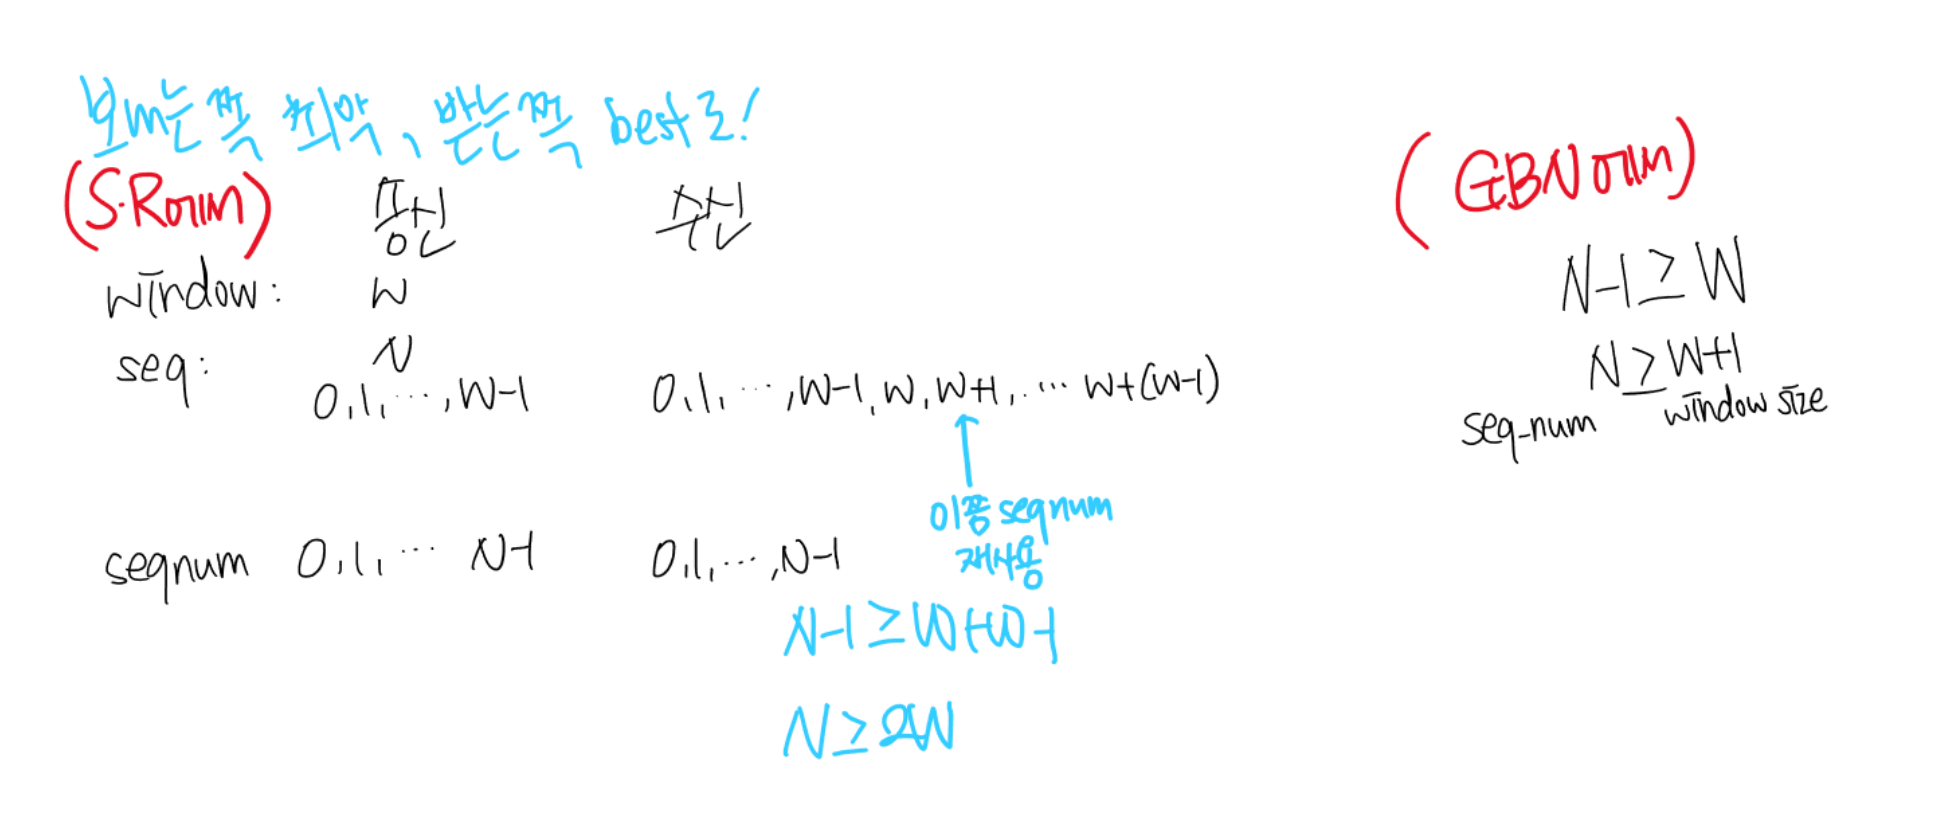 보내는 쪽 최악, 받는쪽 best로!
(S.R에서) 송신 수신
window: W
seq: N
0,1,…,W-1 0,1,…,W-1,W,W+1,…W+(W-1)
이쯤 seqnum
재사용
seqnum 0,1,… N-1 0,1,…,N-1
N-1≥W+W-1
N≥2W
(GBN에서)
N-1≥W
N≥W+1
seq-num window size